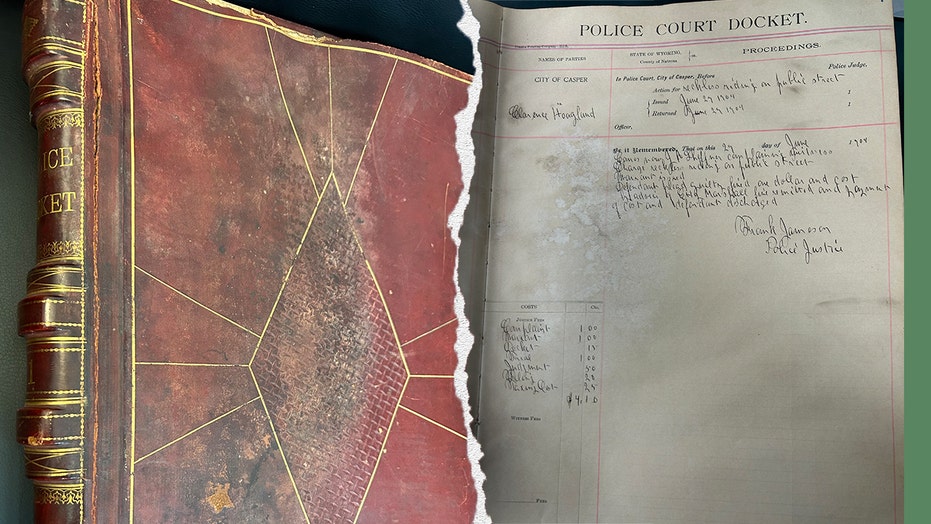 ICE
KET
1
POLICE COURT DOCKET.
NAMES OF PARTIES
STATE OF WYOMING,
County of Natrona
ss.
PROCEEDINGS.
CITY OF CASPER
In Police Court, City of Casper, Before
Police Judge
Action for reckless riding on public street
vs
Issued June 29 1904 1
Clarence Hoaglund
Returned June 29 1904 1
Officer,
Be it Remembered, That on this 29 day of June 1904
Comes now complaining
Charge reckless riding on public street
Warrant issued
Defendant plead guilty fined one dollar and cost
fine remitted and payment
of cost and defendant discharged
Frank Jameson
Police Justice
COSTS Cts.
Justice Fees
Complaint 1 00
Warrant 1 00
Docket 15
1 00
Judgment 50
25
25
$4.10
Witness Fees
Fees